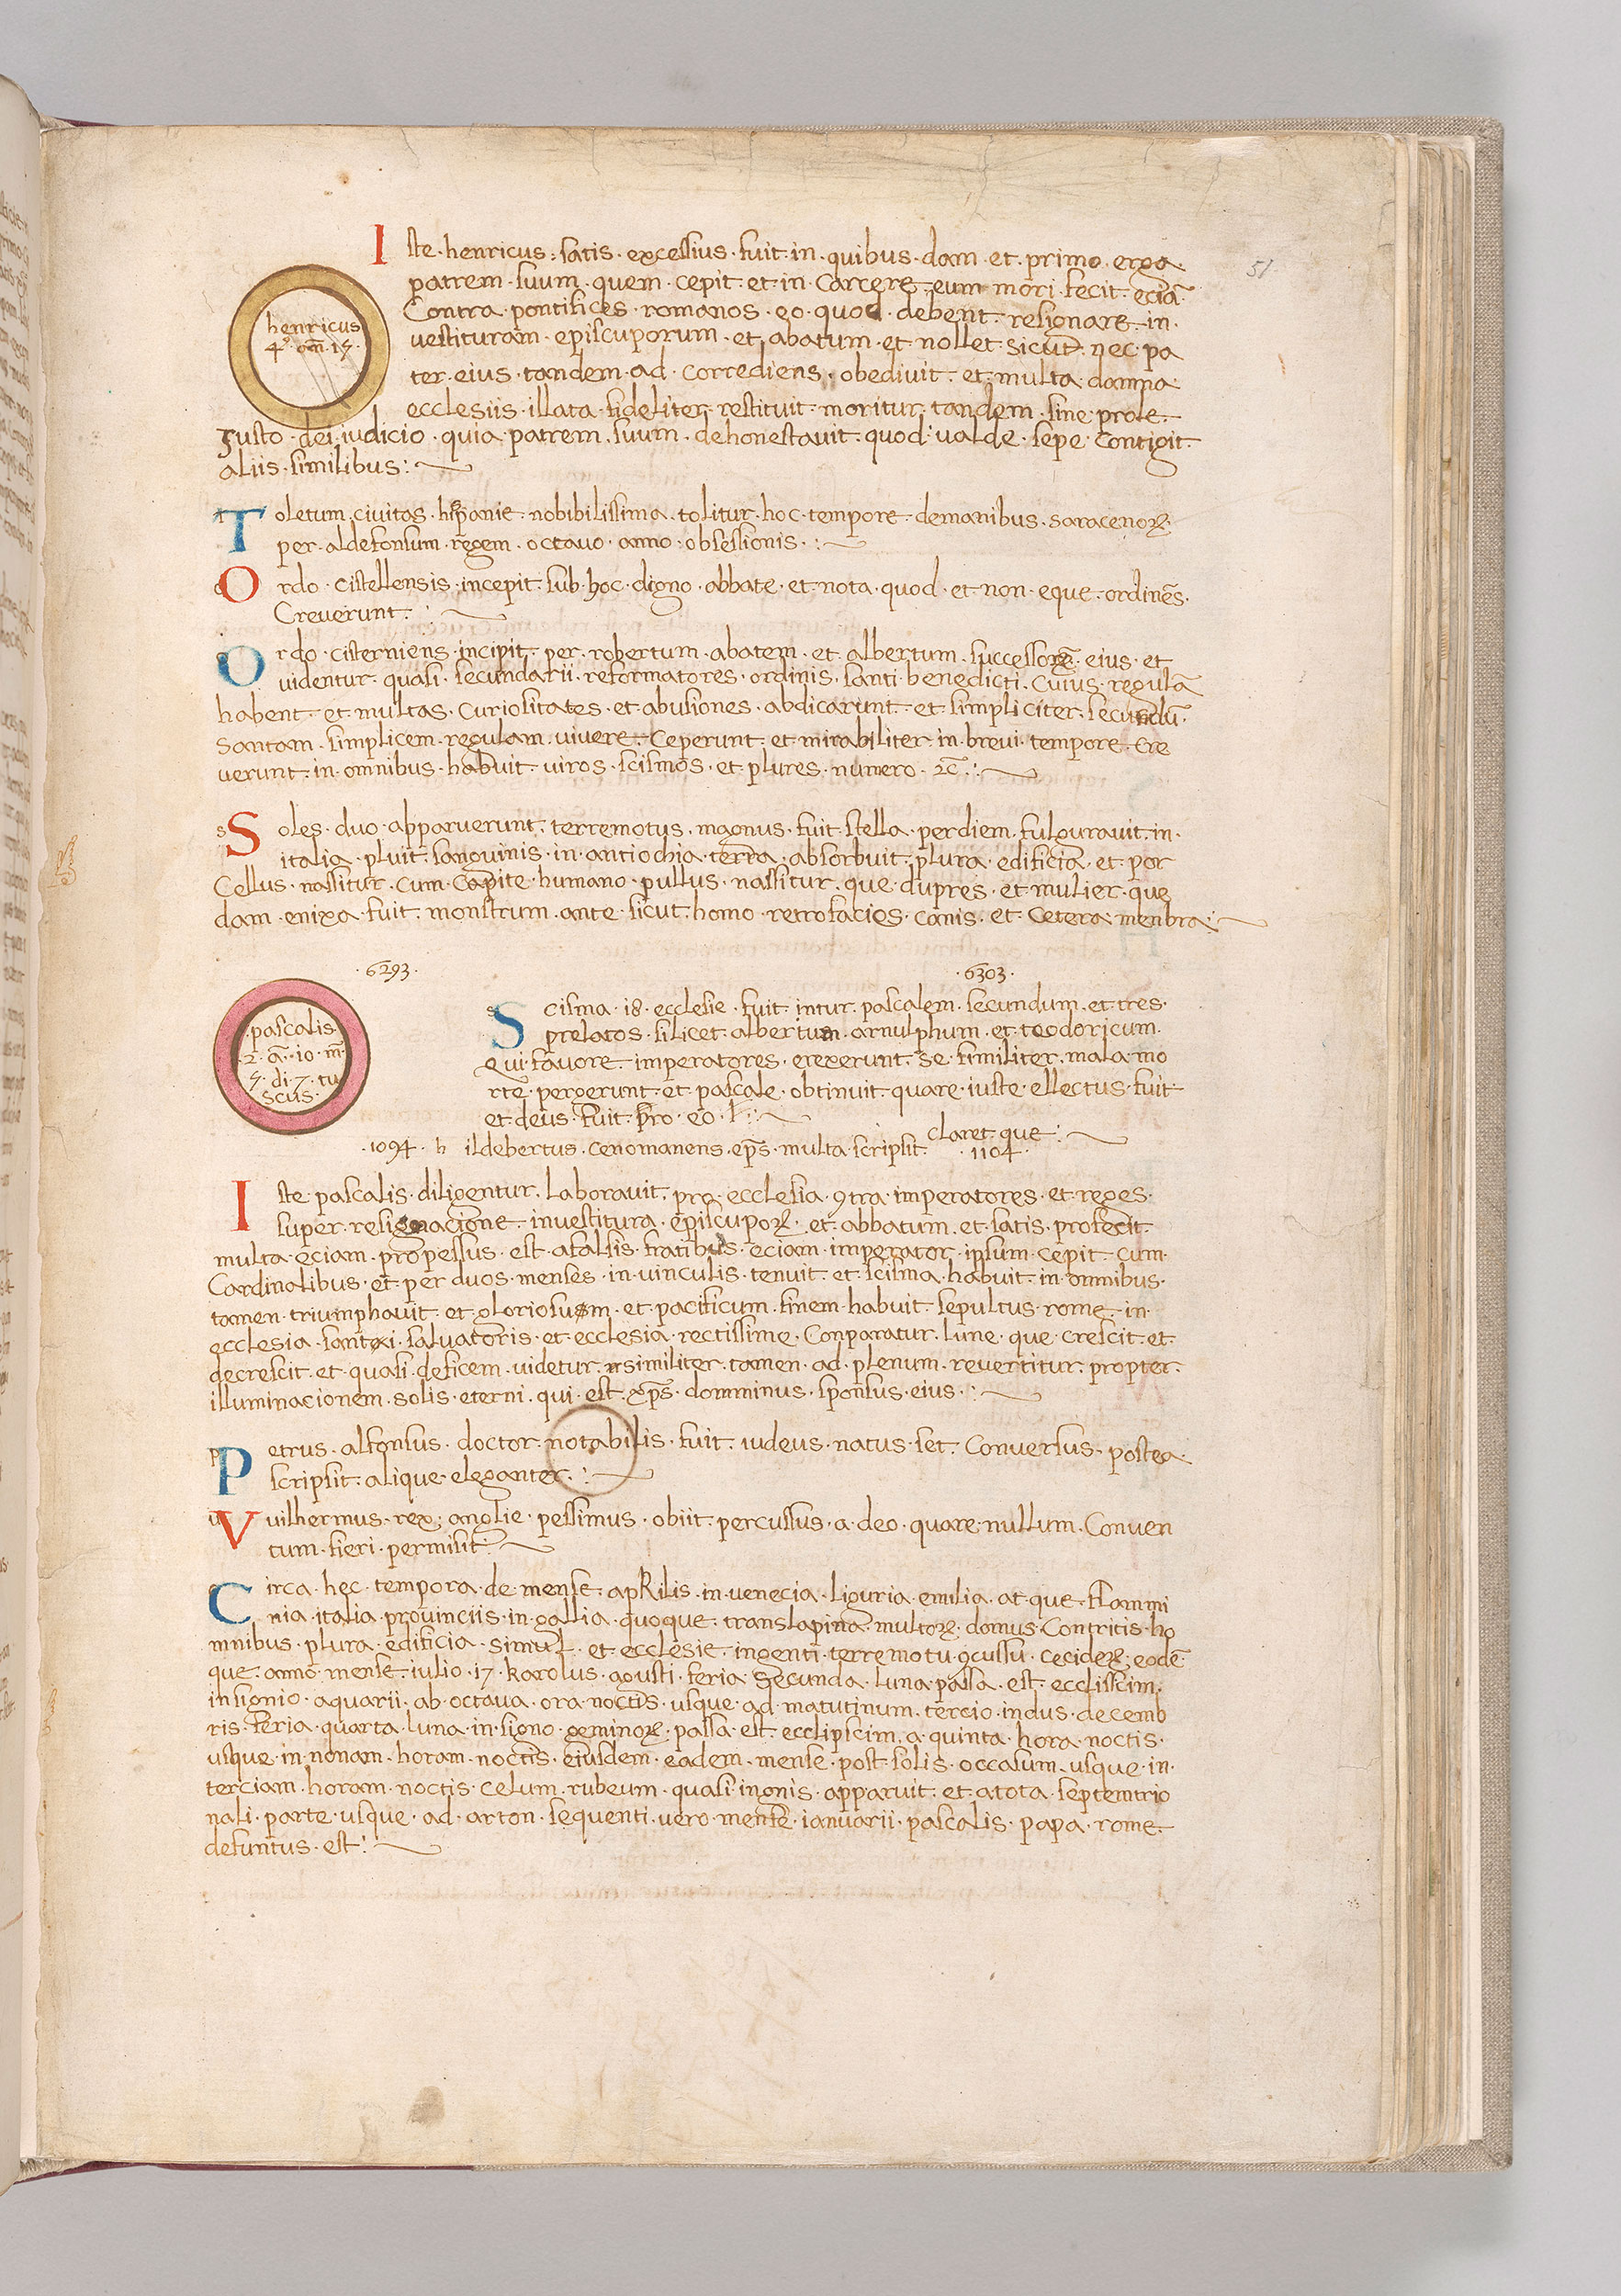 51
Iste · henricus · satis · excessius · fuit · in · quibus · dam · et · primo · erga ·
patrem · suum · quem · cepit · et · in · carcere · eum · mori · fecit · eciã ·
Contra · pontifices · romanos · eo · quod · debent · resignare · in ·
henricus
4º · om̃ · 15 ·
vestituram · episcuporum · et · abatum · et · nollet · sicut · nec · pa
ter · eius · tandem · ad · corrediens · obedivit · et · multa · dampa ·
ecclesiis · illata · fideliter · restituit · moritur · tandem · sine · prole ·
Justo · dei · iudicio · quia · patrem · suum · dehonestavit · quod · valde · sepe · contigit ·
aliis · similibus :
Toletum · civitas · hispanie · nobibilissima · tolitur · hoc · tempore · demanibus · saracenoꝝ ·
per · aldefonsum · regem · octavo · anno · obsessionis · :
Ordo · cistellensis · incepit · sub · hoc · digno · abbate · et · nota · quod · et · non · eque · ordinẽs ·
Creverunt · :
Ordo · cisterniens · incipit · per · robertum · abatem · et · albertum · successorẽ · eius · et
videntur · quasi · secundarii · reformatores · ordinis · santi · benedicti · cuius · regulã
habent · et · multas · curiositates · et · abusiones · abdicarunt · et · simpliciter · secundũ ·
santam · simplicem · regulam · vivere · ceperunt · et · mirabiliter · in · brevi · tempore · cre
verunt · in · omnibus · habuit · viros · scismos · et · plures · numero · ⁊c̃ · :
Soles · duo · apparuerunt · terremotus · magnus · fuit · stella · perdiem · fulguravit · in ·
italia · pluit · sanguinis · in · antiochia · terra · absorbuit · plura · edificia · et · por
Cellus · nassitur · cum · capite · humano · pullus · nassitur · que · dupres · et · mulier · que
dam · enixa · fuit · monstrum · ante · sicut · homo · retrofacies · canis · et · cetera · menbra :
· 6293 · · 6303 ·
· pascalis ·
· 2 · ã · 10 · m̃
5 · di · 7 · tu
scus ·
Scisma · 18 · ecclesie · fuit · intur · pascalem · secundum · et · tres ·
prelatos · silicet · albertum · arnulphum · et · teodoricum ·
Qui · favore · imperatores · erexerunt · se · similiter · mala · mo
rte · pergerunt · et · pascale · obtinuit · quare · iuste · ellectus · fuit ·
et · deus · fuit · pro · eo ·
· 1094 · h ildebertus · cenomanens · ep̃s · multa · scripsit · claret · que :
· 1104 ·
Iste · pascalis · diligentur · laboravit · pro · ecclesia · ꝯtra · imperatores · et · reges ·
super · resignacione · investitura · episcupoꝝ · et · abbatum · et · satis · profecit ·
multa · eciam · propessus · est · afalsis · fratibus · eciam · imperator · ipsum · cepit · cum ·
Cardinalibus · et · per · duos · menses · in · vinculis · tenuit · et · scisma · habuit · in · omnibus ·
tamen · triumphavit · et · gloriosusm · et · pacificum · finem · habuit · sepultus · rome · in ·
ecclesia · santxi · salvatoris · et · ecclesia · rectissime · Conparatur · lune · que · crescit · et ·
decrescit · et · quasi · deficem · videtur · similiter · tamen · ad · plenum · revertitur · propter ·
illuminacionem · solis · eterni · qui · est · xp̃s · domminus · sponsus · eius · :
Petrus · alfonsus · doctor · notabilis · fuit · iudeus · natus · set · Conversus · postea ·
scripsit · alique · eleganter · :
Vuilhermus · rex · anglie · pessimus · obiit · percussus · a · deo · quare · nullum · Conven
tum · fieri · permisit :
Circa · hec · tempora · de · mense · apRilis · in · venecia · liguria · emilia · at · que · flammi
nia · italia · provinciis · in · gallia · quoque · translapina · multoꝝ · domus · Contritis · ho
mnibus · plura · edificia · simul · et · ecclesie · ingenti · terremotu · ꝯcussu · cecideꝝ · eodẽ ·
que · anno · mense · iulio · 17 · karolus · agusti · feria · secunda · luna · passa · est · ecclissim ·
insignio · aquarii · ab · octava · ora · noctis · usque · ad · matutinum · tercio · indus · decemb
ris · feria · quarta · luna · in · signo · geminoꝝ · passa · est · ecclipscim · a · quinta · hora · noctis ·
usque · in · nonam · horam · noctis · eiusdem · eadem · mense · post · solis · occasum · usque · in ·
terciam · horam · noctis · celum · rubeum · quasi · ingnis · apparuit · et · atota · septemtrio
nali · parte · usque · ad · arton · sequenti · vero · mense · ianuarii · pascalis · papa · rome ·
defuntus · est :